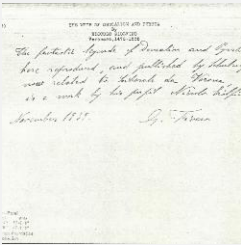 THE MYTH OF DEUCALION AND PYRRHA
By
NICCOLO GIOLFINO
Verona, 1476-1555
The fantastic legends of Deucalion and Pyrrha
here reproduced, and published by
now related to Liberale da Verona
is a work by his pupil Nicolo
November 1937. G. Fiocco